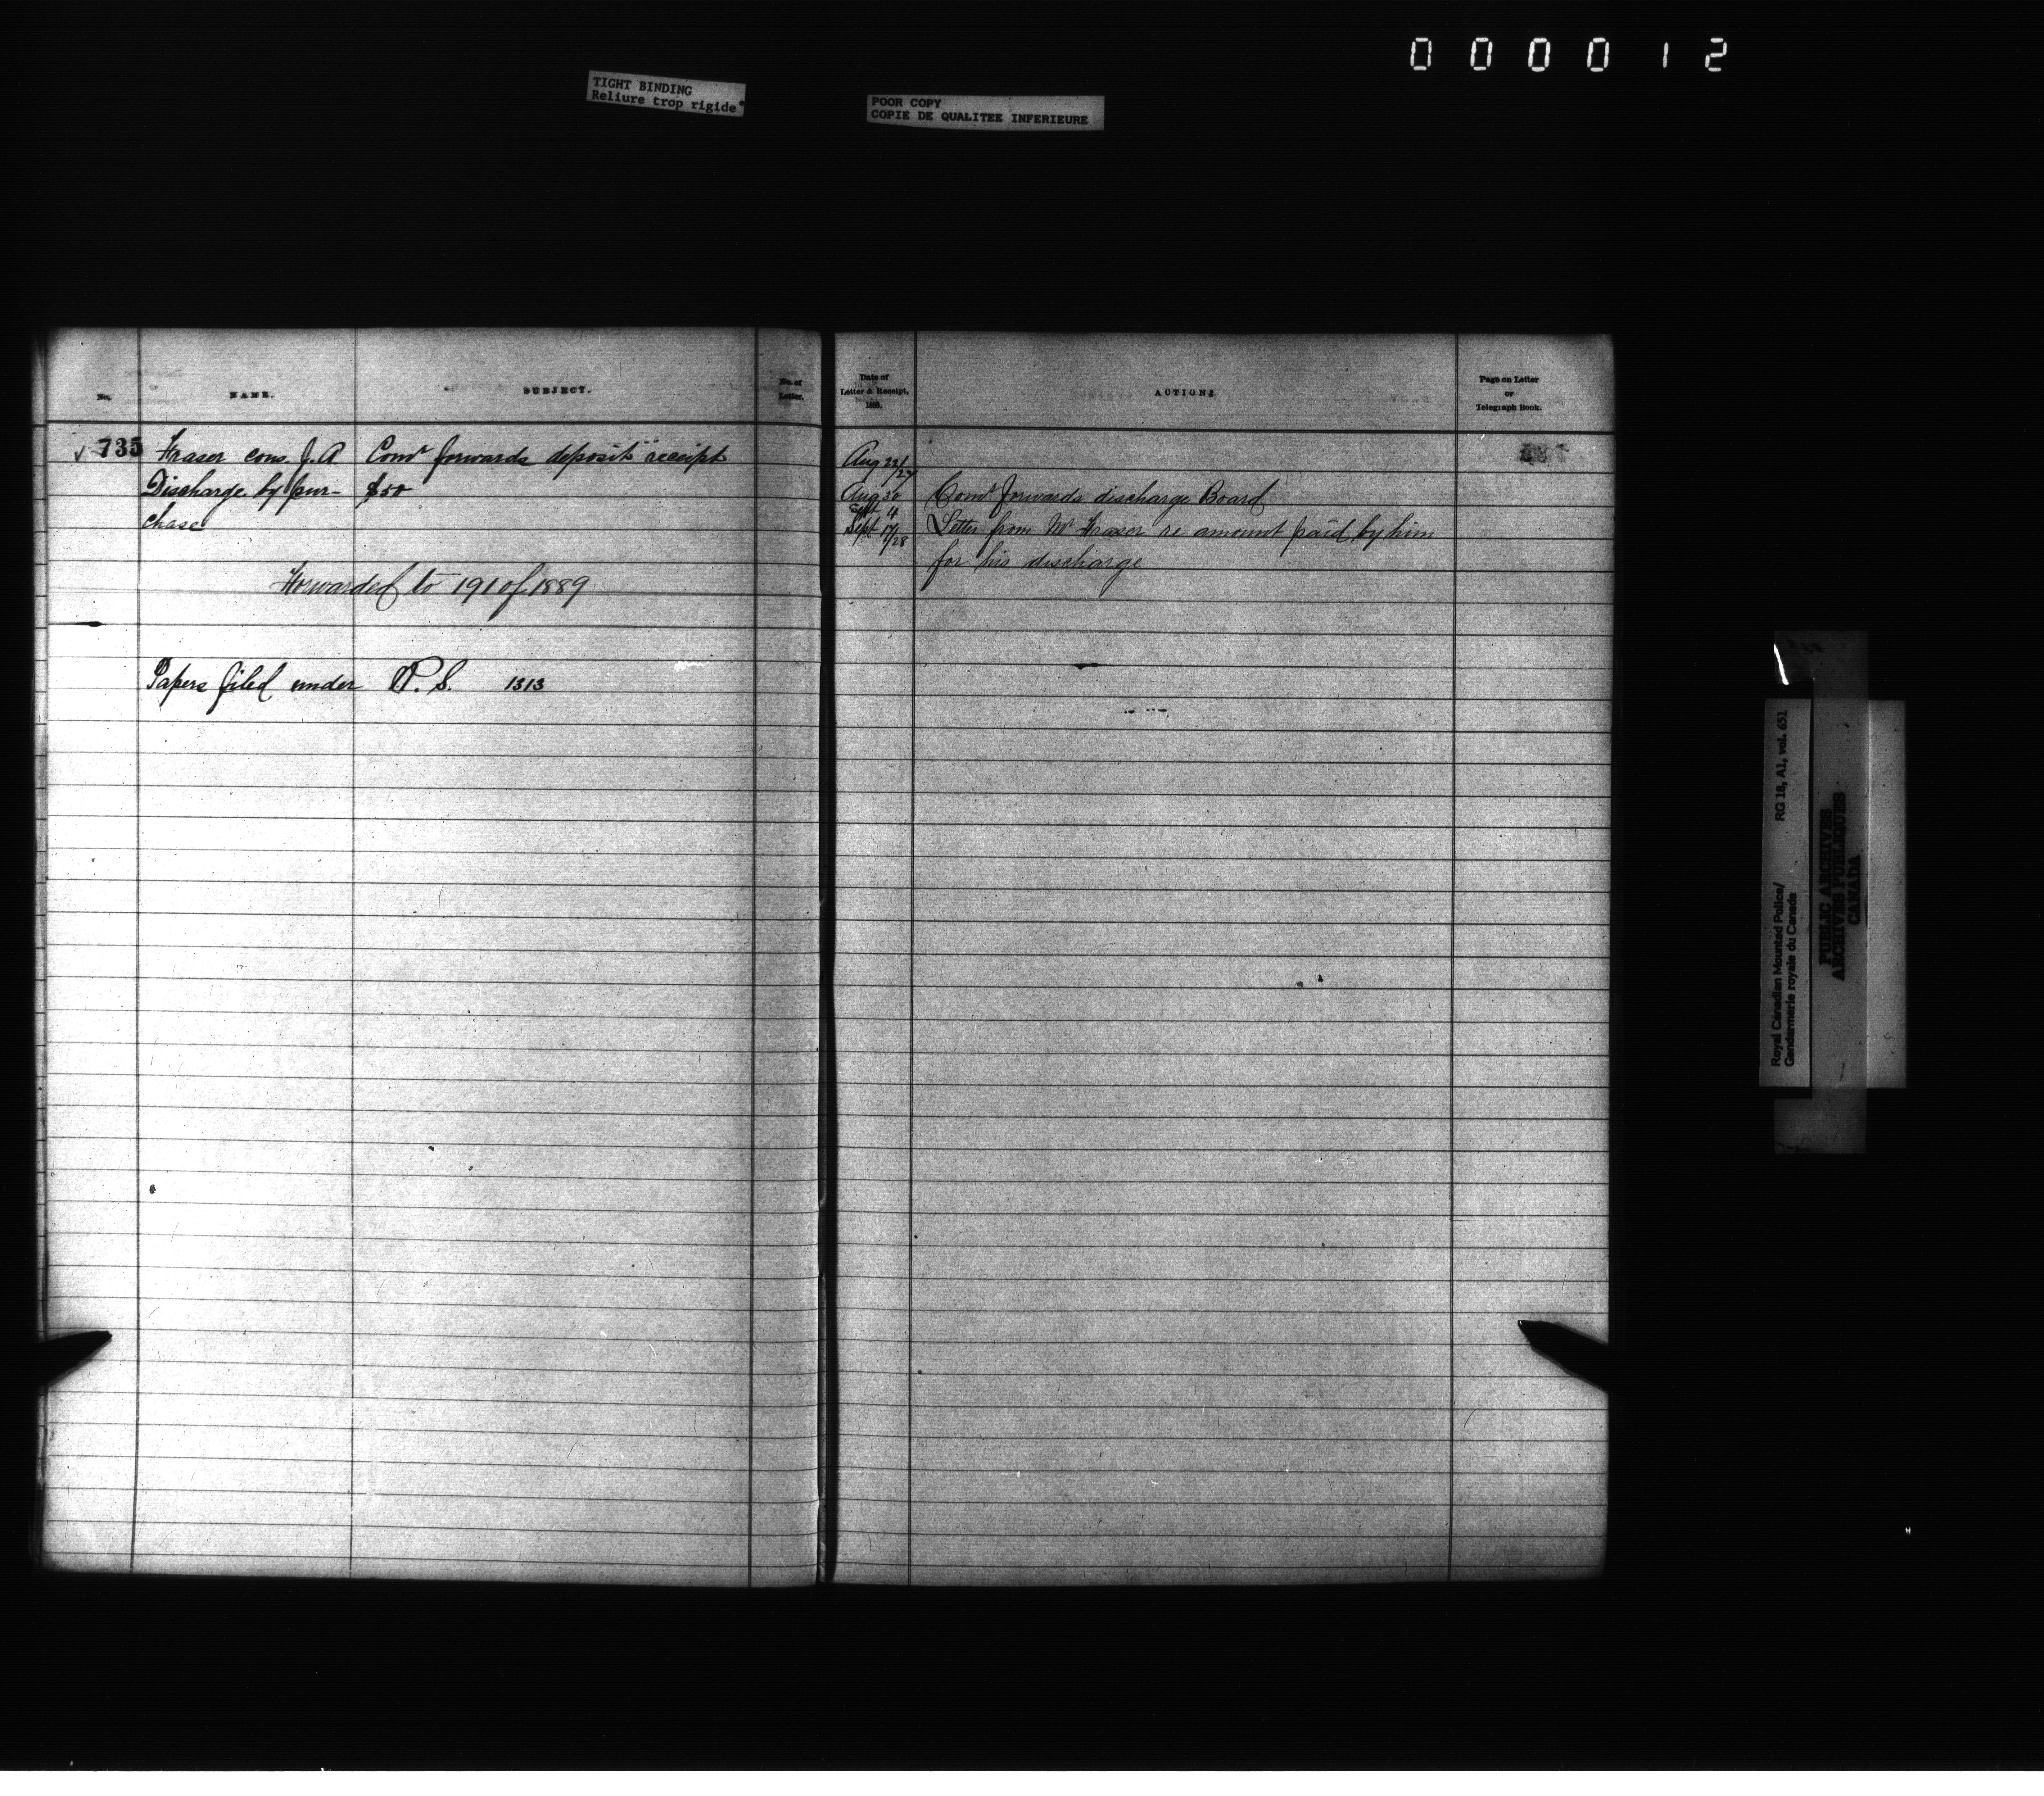 0 0 0 0 1 2
TIGHT BINDING
Reliure trop rigide
POOR COPY
COPIE DE QUALITEE INFERIEURE
No. NAME. SUBJECT. No. of Letter.
735 Fraser cons. J. A Comr forwards deposit receipt
Discharge by pur- $50
chase
Forwarded to 191 of 1889
Papers filed under P. S. 1313
Date of Letter & Receipt, 188 . ACTION: Page on Letter or Telegraph Book.
Aug 22/27
Aug 30 Comr forwards discharge Board
Sept 4
Sept 17/28 Letter from Mr Fraser re amount paid by him
for his discharge
Royal Canadian Mounted Police/ RG 18, A1, vol. 651
Gendarmerie royale du Canada
PUBLIC ARCHIVES
ARCHIVES PUBLIQUES
CANADA